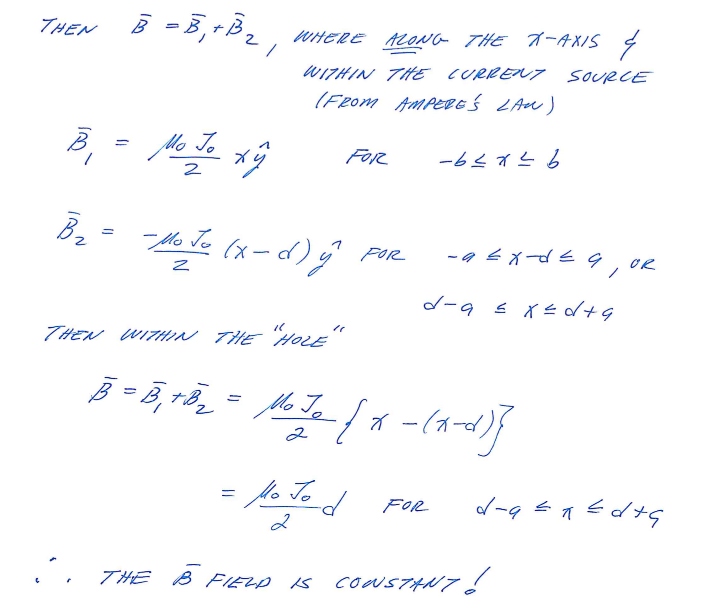 THEN B̄ = B̄₁ + B̄₂, WHERE ALONG THE X-AXIS &
WITHIN THE CURRENT SOURCE
(FROM AMPERE'S LAW)
B̄₁ = μ₀J₀/2 x ŷ FOR -b ≤ x ≤ b
B̄₂ = -μ₀J₀/2 (x-d) ŷ FOR -a ≤ x-d ≤ a, OR
d-a ≤ x ≤ d+a
THEN WITHIN THE "HOLE"
B̄ = B̄₁ + B̄₂ = μ₀J₀/2 {x - (x-d)}
= μ₀J₀/2 d FOR d-a ≤ x ≤ d+a
∴ THE B̄ FIELD IS CONSTANT!